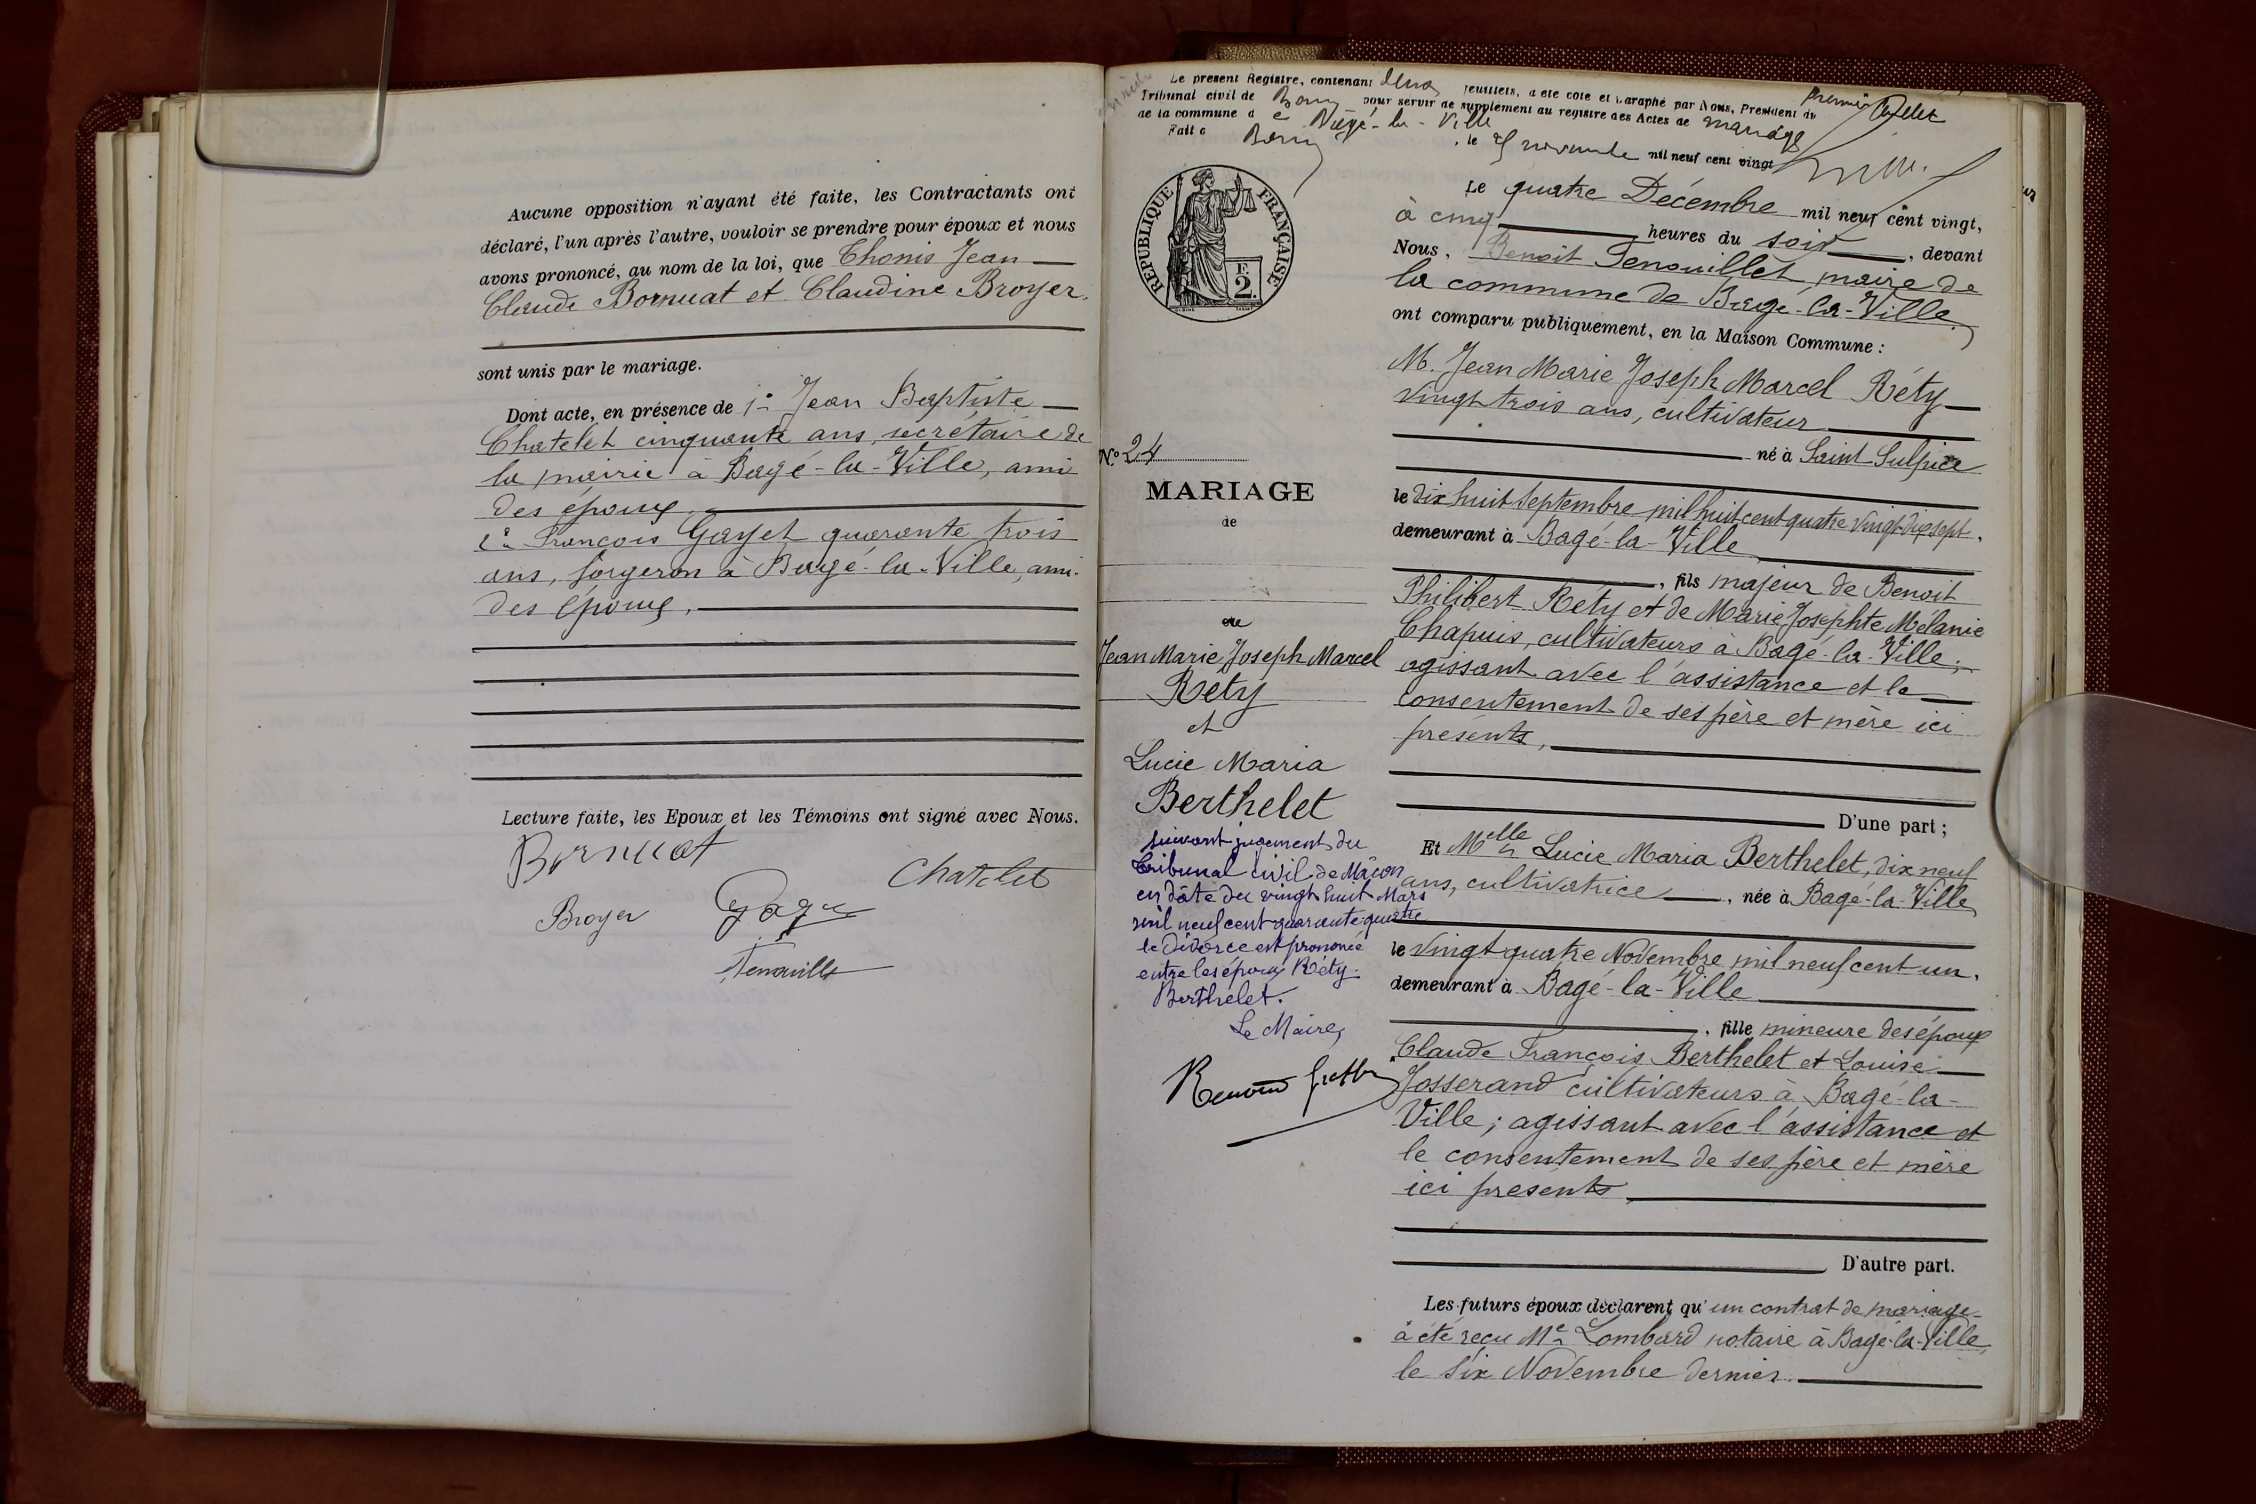 Aucune opposition n'ayant été faite, les Contractants ont
déclaré, l'un après l'autre, vouloir se prendre pour époux et nous
avons prononcé, au nom de la loi, que Thonis Jean
Claude Bornuat et Claudine Broyer.
sont unis par le mariage.
Dont acte, en présence de 1° Jean Baptiste
Chatelet cinquante ans, secrétaire de
la mairie à Bagé-la-Ville, ami
des époux,
2° François Gayet quarante trois
ans, forgeron à Bagé-la-Ville, ami
des époux.
Lecture faite, les Epoux et les Témoins ont signé avec Nous.
Bornuat
Chatelet
Broyer
Le présent Registre, contenant deux feuillets, a été coté et paraphé par Nous, Président du
premier feuillet
Tribunal civil de Bourg pour servir de supplément au registre des Actes de mariage
de la commune de Bagé-la-Ville
Fait à Bourg, le novembre mil neuf cent vingt
REPUBLIQUE FRANÇAISE
2
Le quatre Décembre mil neuf cent vingt,
à cinq heures du soir, devant
Nous, Benoit Tenouillet maire de
la commune de Bagé-la-Ville
ont comparu publiquement, en la Maison Commune :
M. Jean Marie Joseph Marcel Réty
vingt trois ans, cultivateur
né à Saint Sulpice
le dix huit Septembre mil huit cent quatre vingt dix sept,
demeurant à Bagé-la-Ville
, fils majeur de Benoit
Philibert Réty et de Marie Josephte Mélanie
Chapuis, cultivateurs à Bagé-la-Ville ;
agissant avec l'assistance et le
consentement de ses père et mère ici
présents,
D'une part ;
Et Melle Lucie Maria Berthelet, dix neuf
ans, cultivatrice, née à Bagé-la-Ville
le vingt quatre Novembre mil neuf cent un,
demeurant à Bagé-la-Ville
, fille mineure des époux
Claude François Berthelet et Louise
Josserand cultivateurs à Bagé-la-
Ville ; agissant avec l'assistance et
le consentement de ses père et mère
ici présents
D'autre part.
Les futurs époux déclarent qu'un contrat de mariage
a été reçu Me Lombard notaire à Bagé-la-Ville,
le six Novembre dernier.
N° 24
MARIAGE
de
Jean Marie Joseph Marcel
Réty
et
Lucie Maria
Berthelet
suivant jugement du
Tribunal civil de Mâcon
en date du vingt huit Mars
mil neuf cent quarante quatre
le divorce est prononcé
entre les époux Réty-
Berthelet.
Le Maire,